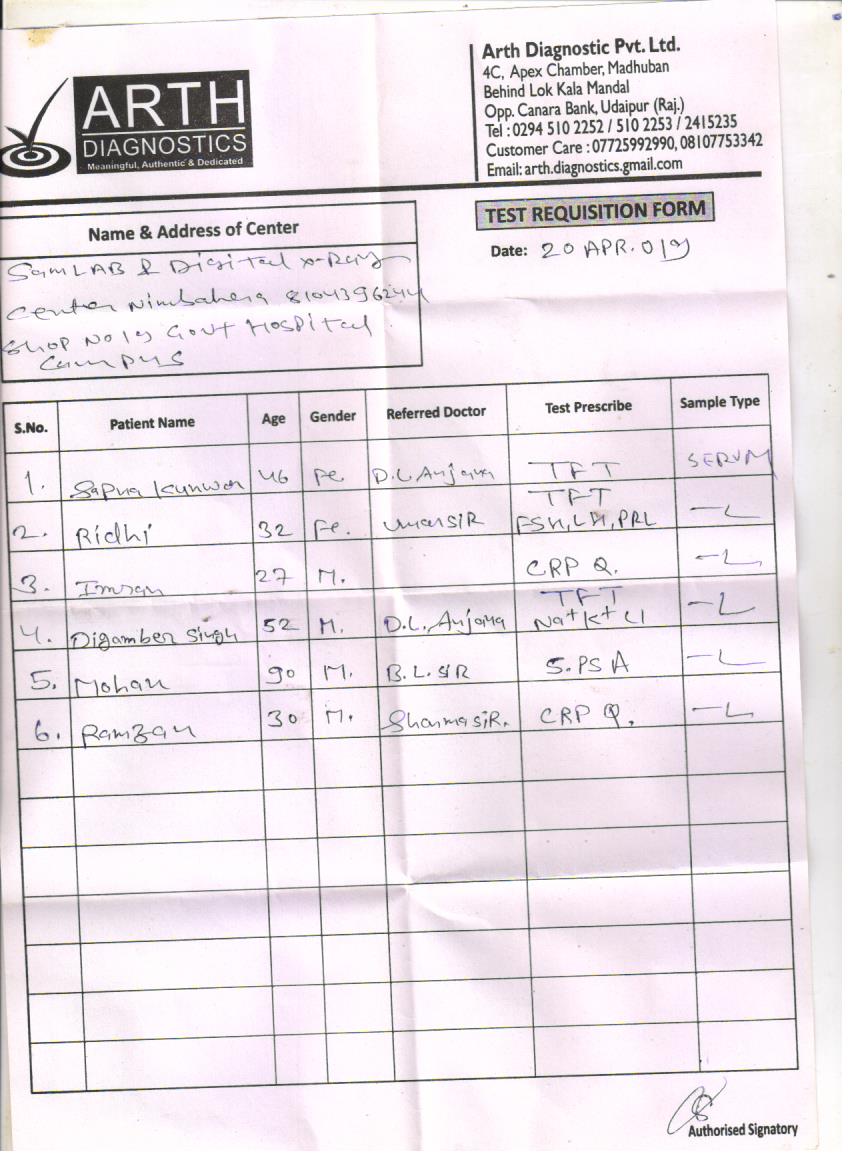 ARTH
DIAGNOSTICS
Meaningful, Authentic & Dedicated
Arth Diagnostic Pvt. Ltd.
4C, Apex Chamber, Madhuban
Behind Lok Kala Mandal
Opp. Canara Bank, Udaipur (Raj.)
Tel : 0294 510 2252 / 510 2253 / 2415235
Customer Care : 07725992990, 08107753342
Email: arth.diagnostics.gmail.com
TEST REQUISITION FORM
Date: 20 APR. 019
Name & Address of Center
SamLAB & Digital x-Ray
Center Nimbahera 8104396244
Shop No 19 Govt Hospital
Campus
S.No. Patient Name Age Gender Referred Doctor Test Prescribe Sample Type
1. Sapna Kunwar 46 Fe. D.L Anjana TFT SERUM
2. Ridhi 32 Fe. SIR TFT
FSH, LH, PRL
3. Imran 27 M. CRP Q.
4. Digamber Singh 52 M. D.L. Anjana TFT
Na+ K+ Cl
5. Mohan 90 M. B.L. SIR S. PSA
6. Ramzan 30 M. Sharma SIR. CRP Q.
Authorised Signatory